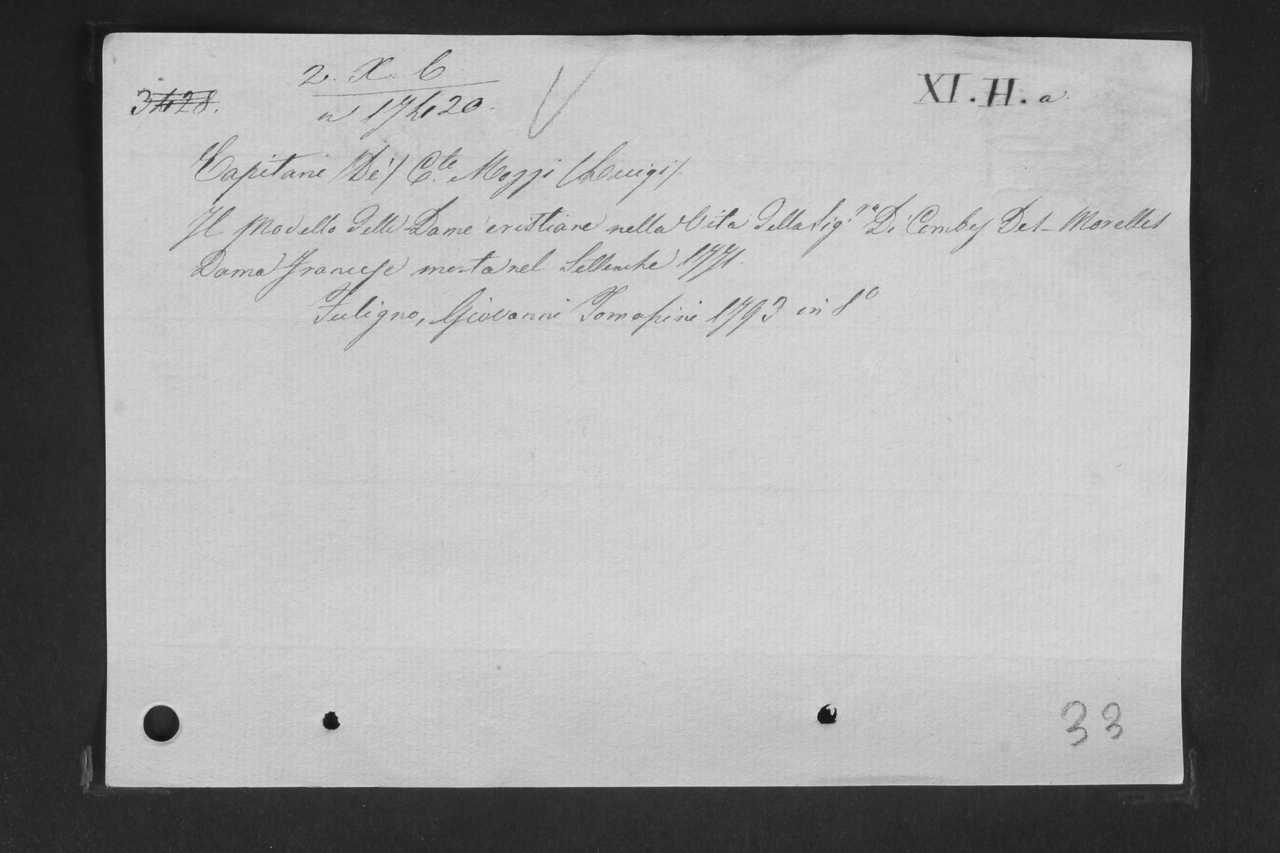 2. X. C.
3428.
n 17420.
XI. H. a
Capitani /De'/ C.te Mozzi /Luigi/.
Il Modello delle Dame cristiane nella Vita della Sig.ra Di Combes Des-Morelles
Dama Francese morta nel Settembe 1771.
Fuligno, Giovanni Tomassini 1793 in 8º
33